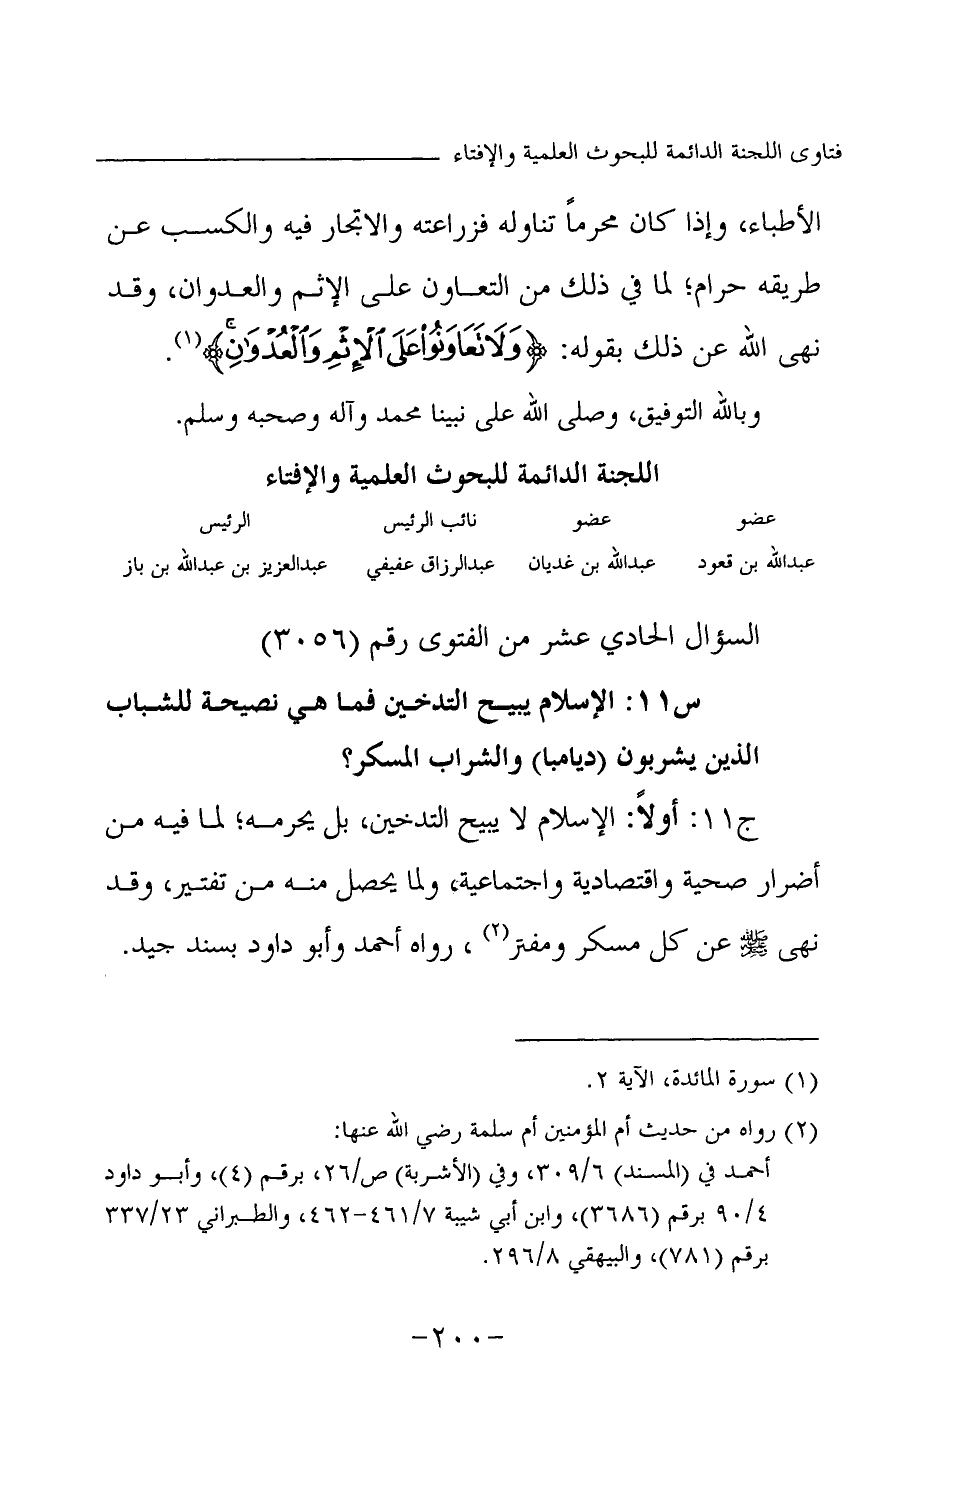 فتاوى اللجنة الدائمة للبحوث العلمية والإفتاء
الأطباء، وإذا كان محرماً تناوله فزراعته والاتجار فيه والكسب عن
طريقه حرام؛ لما في ذلك من التعاون على الإثم والعدوان، وقد
نهى الله عن ذلك بقوله: ﴿وَلَا تَعَاوَنُوا عَلَى ٱلْإِثْمِ وَٱلْعُدْوَٰنِ ۚ﴾(١).
وبالله التوفيق، وصلى الله على نبينا محمد وآله وصحبه وسلم.
اللجنة الدائمة للبحوث العلمية والإفتاء
عضو عضو نائب الرئيس الرئيس
عبدالله بن قعود عبدالله بن غديان عبدالرزاق عفيفي عبدالعزيز بن عبدالله بن باز
السؤال الحادي عشر من الفتوى رقم (٣٠٥٦)
س١١: الإسلام يبيح التدخين فما هي نصيحة للشباب
الذين يشربون (ديامبا) والشراب المسكر؟
ج١١: أولاً: الإسلام لا يبيح التدخين، بل يحرمه؛ لما فيه من
أضرار صحية واقتصادية واجتماعية، ولما يحصل منه من تفتير، وقد
نهى ﷺ عن كل مسكر ومفتر(٢)، رواه أحمد وأبو داود بسند جيد.
(١) سورة المائدة، الآية ٢.
(٢) رواه من حديث أم المؤمنين أم سلمة رضي الله عنها:
أحمد في (المسند) ٣٠٩/٦، وفي (الأشربة) ص/٢٦، برقم (٤)، وأبو داود
٩٠/٤ برقم (٣٦٨٦)، وابن أبي شيبة ٤٦١/٧-٤٦٢، والطبراني ٣٣٧/٢٣
برقم (٧٨١)، والبيهقي ٢٩٦/٨.
-٢٠٠-